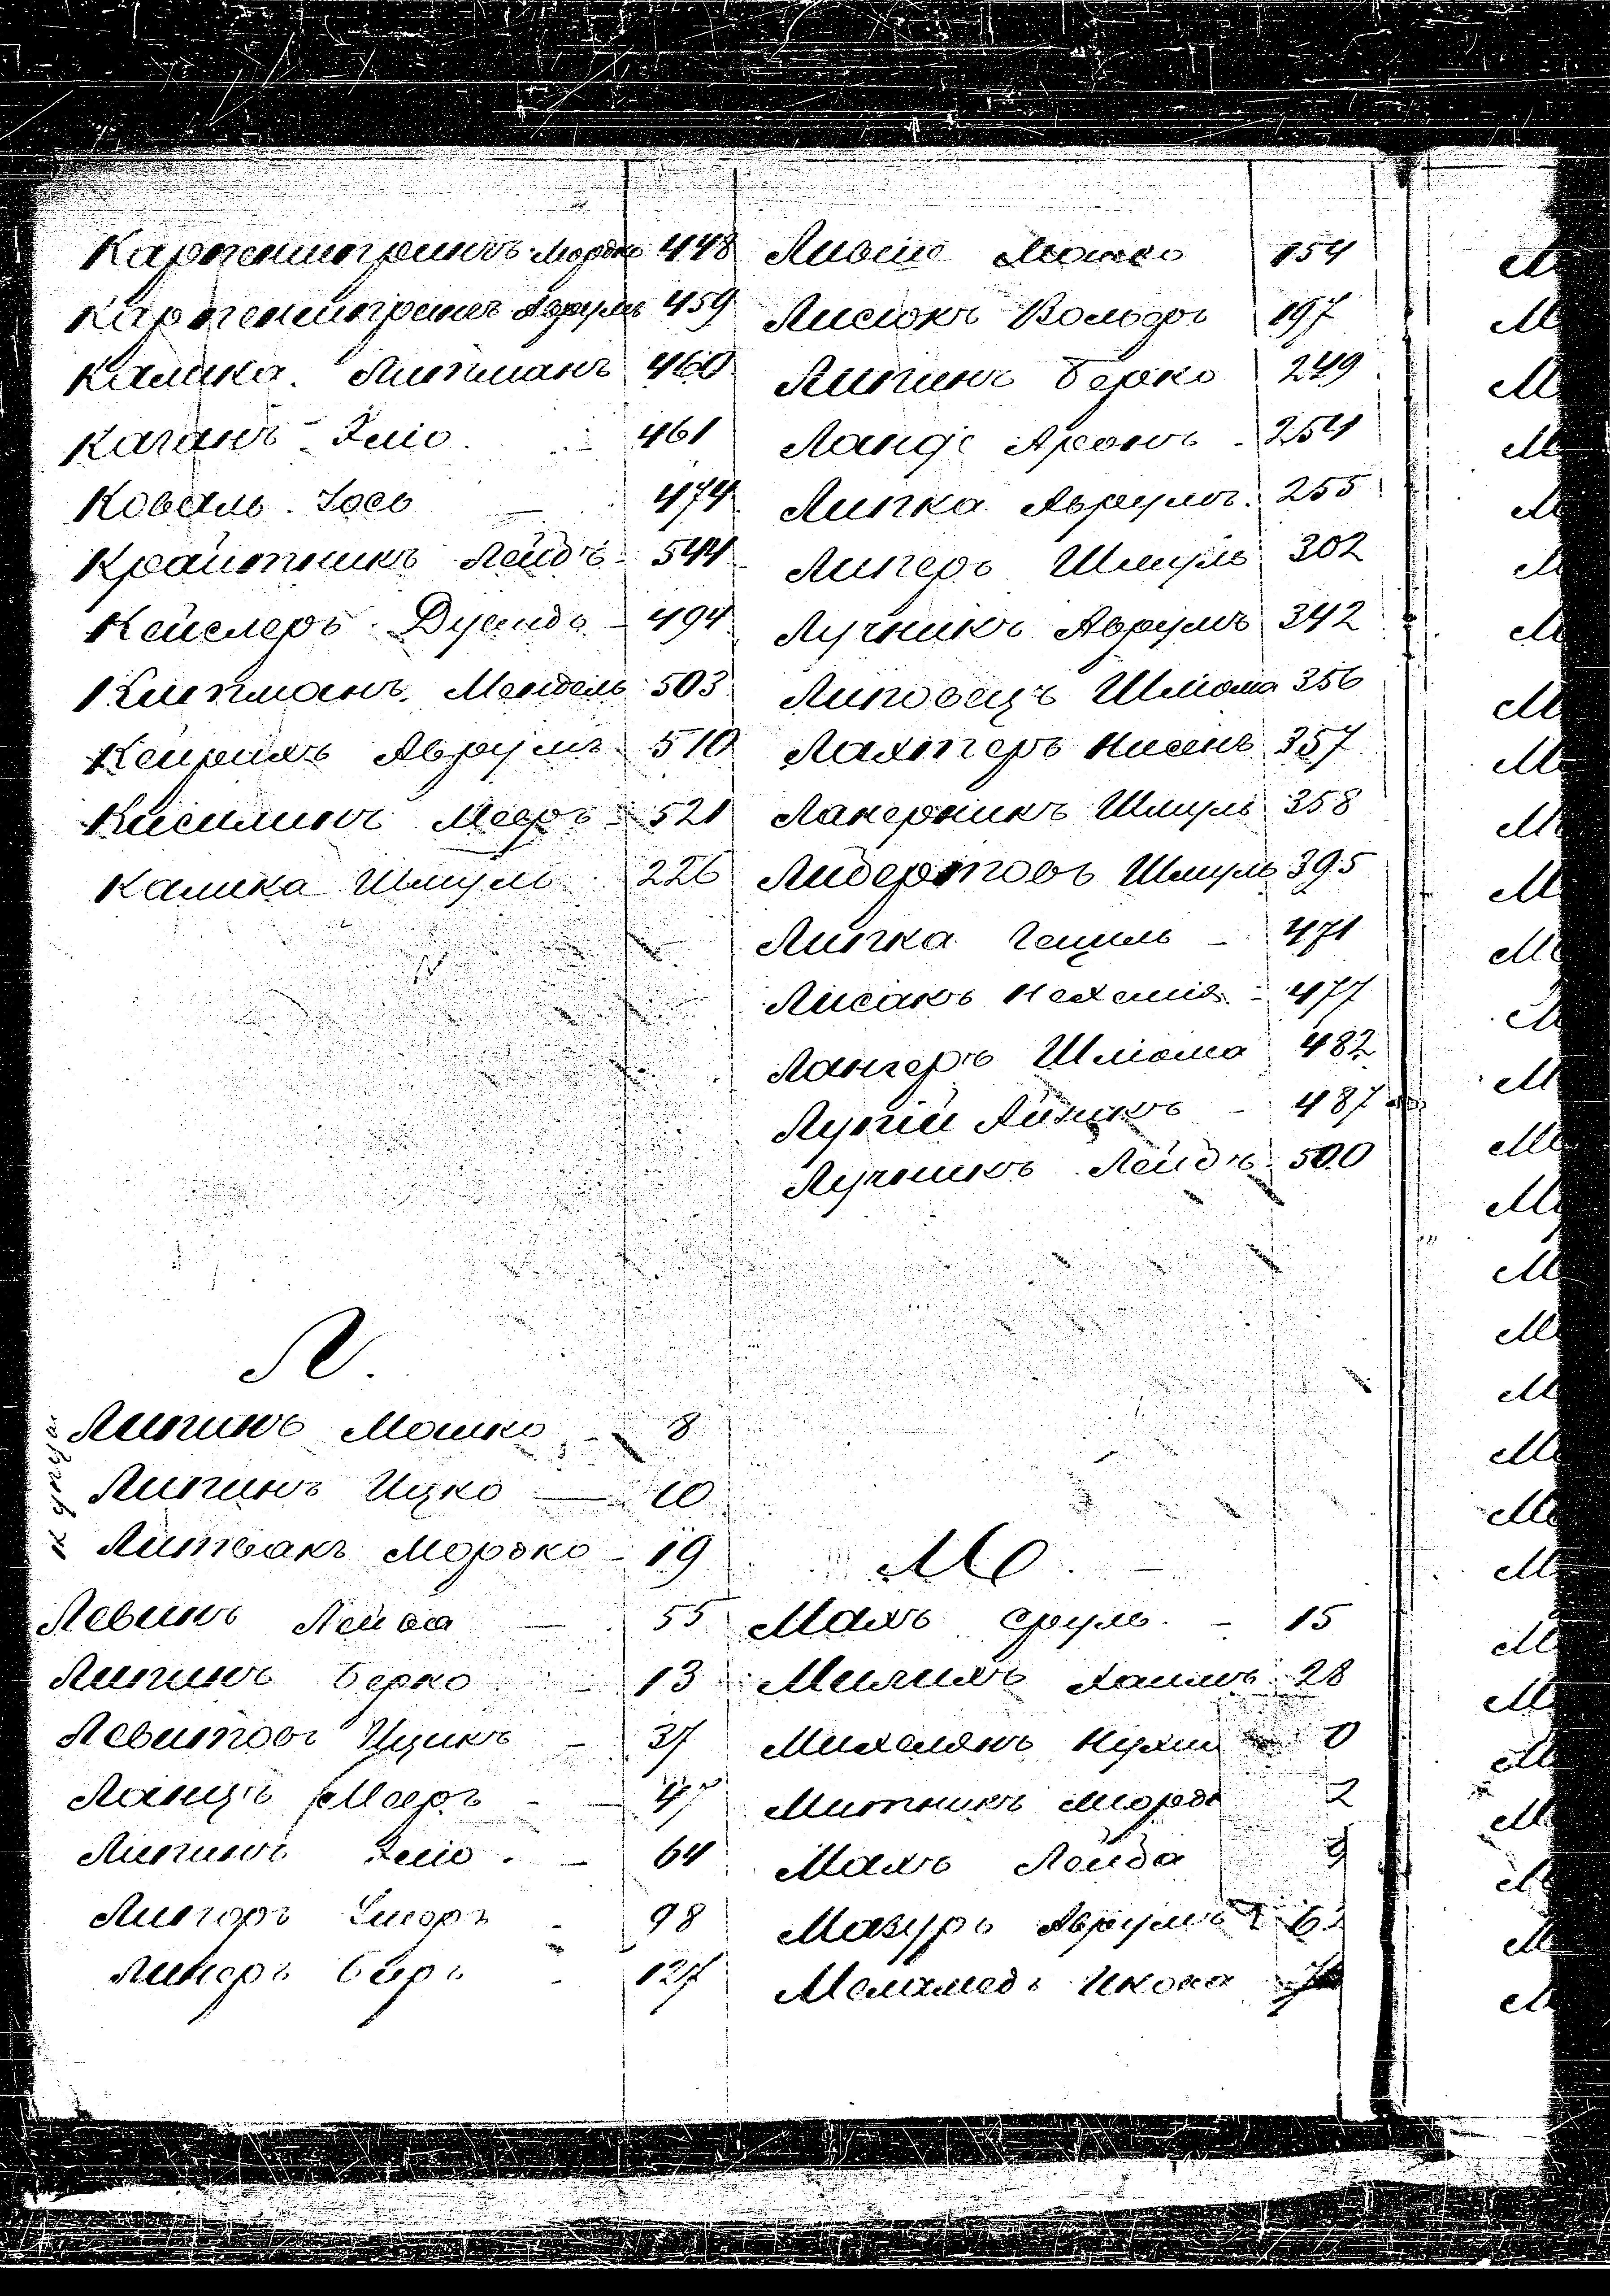 Карпенштринъ Мордко 448
Карпенштринъ Аврумъ 459
Калика Липманъ 460
Каганъ Эліо 461
Коваль Іось 474
Крайтникъ Лейбъ 544
Кейслеръ Дувидъ 494
Клипманъ Мендель 503
Кейрихъ Аврумъ 510
Кисилинъ Мееръ 521
Калика Шмуль 226
Л.
Липинъ Мошко 8
Липинъ Ицко 10
Литвакъ Мордко 19
Левинъ Лейба 55
Липинъ Берко 13
Левитовъ Ицикъ 37
Ланцъ Мееръ 47
Липинъ Эліо 64
Лингоръ 98
Линеръ Беръ 127
Лившо Мошко 154
Лисюкъ Вольфъ 197
Липинъ Берко 249
Ланде Аронъ 254
Липка Аврумъ 255
Липеръ Шмуль 302
Лучникъ Аврумъ 342
Липовецъ Шліома 356
Лахтеръ Нисень 357
Лакерникъ Шмуль 358
Лидертовъ Шмуль 395
Липка Гецель 471
Лисакъ Нехемія 477
Лангеръ Шліома 482
Лупій Айзикъ 487
Лучникъ Лейбъ 500
М.
Махъ Сруль 15
Милихъ Хаимъ 28
Михелянъ Нухим 0
Митникъ Мордк 2
Махъ Лейба 9
Мазуръ Аврумъ 6
Меламедъ Икова